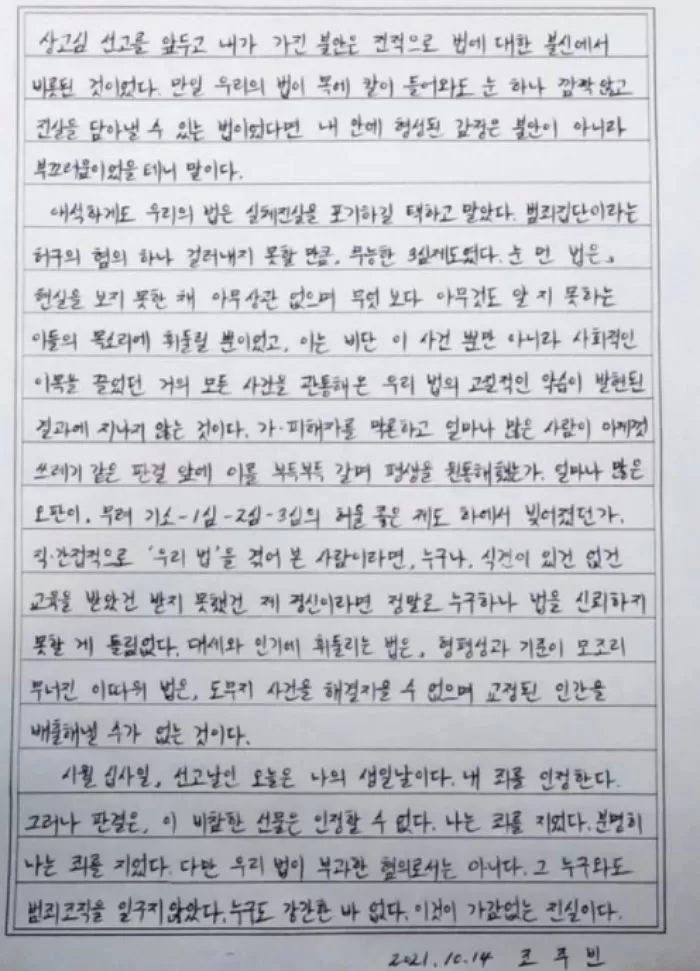 상고심 선고를 앞두고 내가 가진 불안은 전적으로 법에 대한 불신에서
비롯된 것이었다. 만일 우리의 법이 목에 칼이 들어와도 눈 하나 깜짝 않고
진실을 담아낼 수 있는 법이었다면 내 안에 형성된 감정은 불안이 아니라
부끄러움이었을 테니 말이다.
애석하게도 우리의 법은 실체진실을 포기하길 택하고 말았다. 범죄집단이라는
허구의 혐의 하나 걸러내지 못할 만큼, 무능한 3심제도였다. 눈 먼 법은,
현실을 보지 못한 채 아무 상관 없으며 무엇 보다 아무것도 알 지 못하는
이들의 목소리에 휘둘릴 뿐이었고, 이는 비단 이 사건 뿐만 아니라 사회적인
이목을 끌었던 거의 모든 사건을 관통해온 우리 법의 고질적인 악습이 발현된
결과에 지나지 않는 것이다. 가·피해자를 막론하고 얼마나 많은 사람이 이제껏
쓰레기 같은 판결 앞에 이를 부득부득 갈며 평생을 원통해했는가. 얼마나 많은
오판이, 무려 기소-1심-2심-3심의 허울 좋은 제도 하에서 빚어졌던가.
직·간접적으로 '우리 법'을 겪어 본 사람이라면, 누구나, 식견이 있건 없건
교육을 받았건 받지 못했건 제 정신이라면 정말로 누구하나 법을 신뢰하지
못할 게 틀림없다. 대세와 인기에 휘둘리는 법은, 형평성과 기준이 모조리
무너진 이따위 법은, 도무지 사건을 해결지을 수 없으며 교정된 인간을
배출해낼 수가 없는 것이다.
시월 십사일, 선고날인 오늘은 나의 생일날이다. 내 죄를 인정한다.
그러나 판결은, 이 비참한 선물은 인정할 수 없다. 나는 죄를 지었다. 분명히
나는 죄를 지었다. 다만 우리 법이 부과한 혐의로서는 아니다. 그 누구와도
범죄조직을 일구지 않았다. 누구도 강간한 바 없다. 이것이 가감없는 진실이다.
2021. 10. 14 조 주 빈